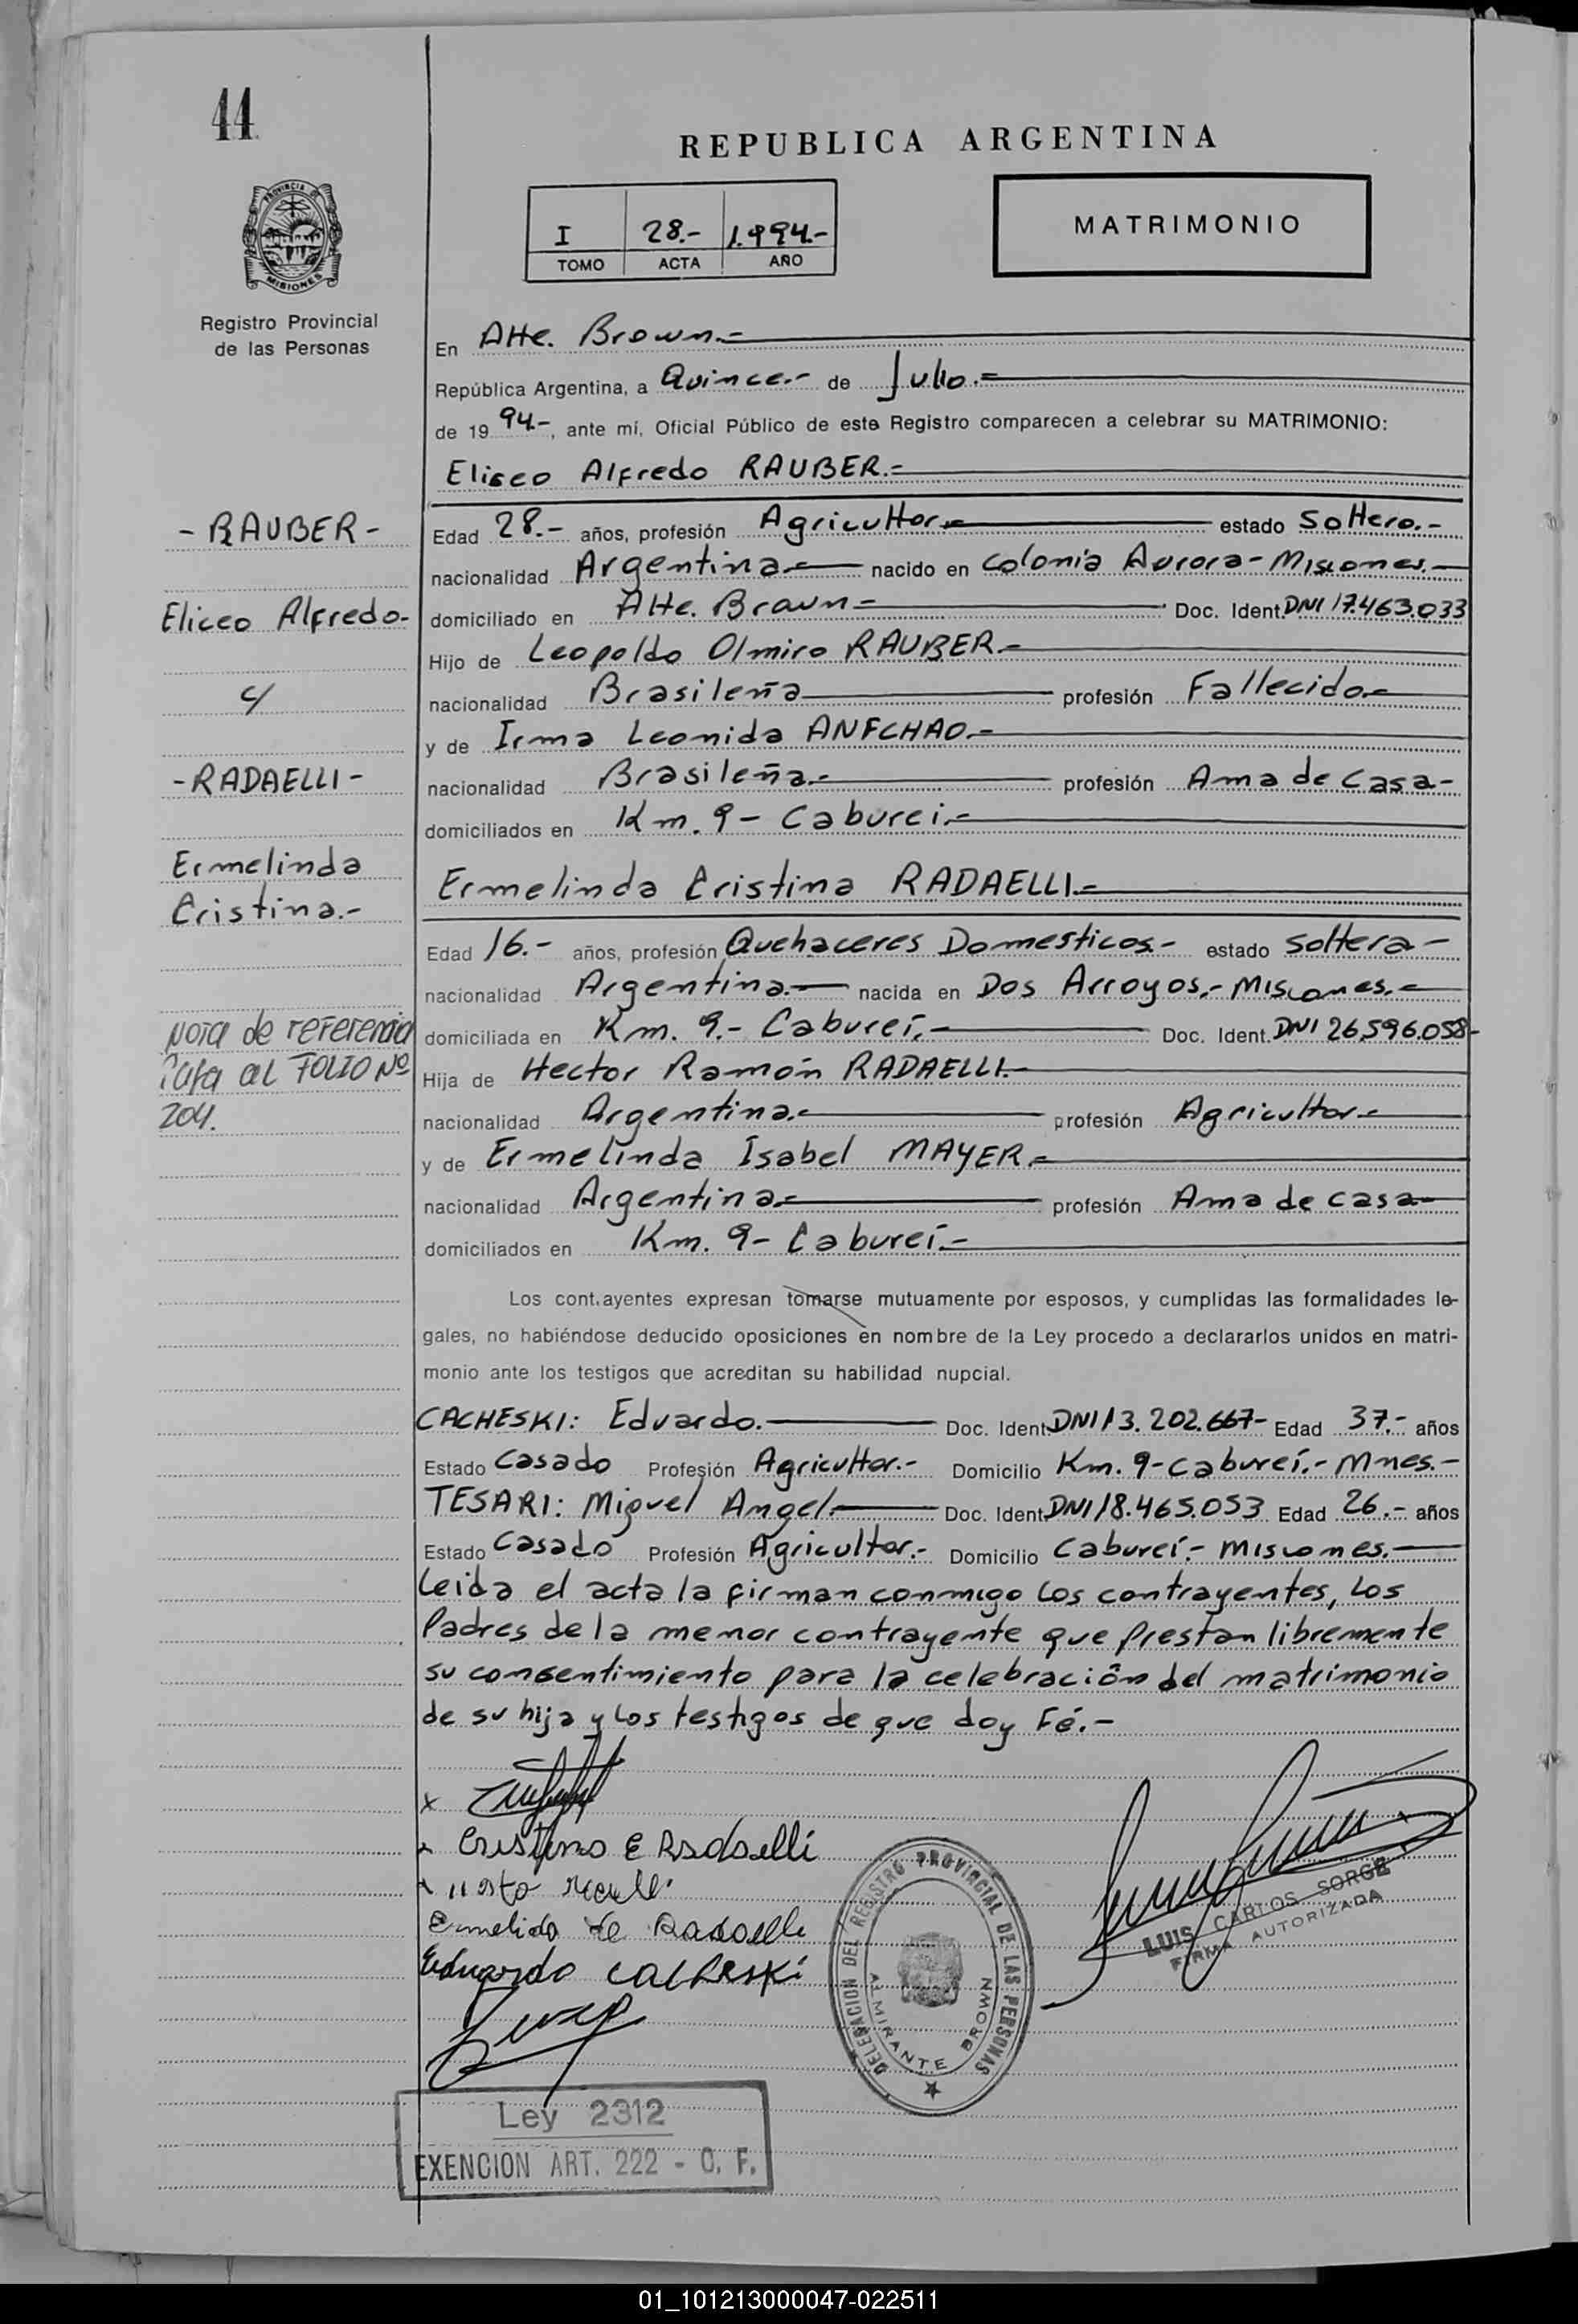 44
REPUBLICA ARGENTINA
PROVINCIA DE
MISIONES
I 28.- 1.994.-
TOMO ACTA AÑO
MATRIMONIO
Registro Provincial
de las Personas
En Alte. Brown.-
República Argentina, a Quince.- de Julio.=
de 19 94.-, ante mí, Oficial Público de este Registro comparecen a celebrar su MATRIMONIO:
Eliseo Alfredo RAUBER.-
- RAUBER -
Edad 28.- años, profesión Agricultor.- estado Soltero.-
nacionalidad Argentina.- nacido en Colonia Aurora - Misiones.-
Eliceo Alfredo-
domiciliado en Alte. Brown - Doc. Ident. DNI 17.463.033
Hijo de Leopoldo Olmiro RAUBER.-
c/
nacionalidad Brasileña profesión Fallecido.-
y de Irma Leonida ANFCHAO.-
- RADAELLI -
nacionalidad Brasileña.- profesión Ama de Casa-
domiciliados en Km. 9 - Caburei.-
Ermelinda
Cristina.-
Ermelinda Cristina RADAELLI.-
Edad 16.- años, profesión Quehaceres Domesticos.- estado Soltera-
nacionalidad Argentina.- nacida en Dos Arroyos.- Misiones.-
Nota de referencia
Pasa al FOLIO Nº
204.
domiciliada en Km. 9.- Cabureí.- Doc. Ident. DNI 26.596.058-
Hija de Hector Ramón RADAELLI.-
nacionalidad Argentina.- profesión Agricultor.-
y de Ermelinda Isabel MAYER.-
nacionalidad Argentina.- profesión Ama de casa-
domiciliados en Km. 9 - Cabureí.-
Los cont.ayentes expresan tomarse mutuamente por esposos, y cumplidas las formalidades le-
gales, no habiéndose deducido oposiciones en nombre de la Ley procedo a declararlos unidos en matri-
monio ante los testigos que acreditan su habilidad nupcial.
CACHESKI: Eduardo. Doc. Ident. DNI 13.202.667- Edad 37.- años
Estado Casado Profesión Agricultor.- Domicilio Km. 9 - Cabureí.- Mnes.-
TESARI: Miguel Angel.- Doc. Ident. DNI 18.465.053 Edad 26.- años
Estado Casado Profesión Agricultor.- Domicilio Cabureí.- Misiones.-
Leida el acta la firman conmigo los contrayentes, los
Padres de la menor contrayente que Prestan libremente
su consentimiento para la celebración del matrimonio
de su hija y los testigos de que doy Fé.-
x
Cristina E Radaelli
Ermelida de Radaelli
Eduardo CaCheski
DELEGACION DEL REGISTRO PROVINCIAL DE LAS PERSONAS
ALMIRANTE BROWN
LUIS CARLOS SORGE
FIRMA AUTORIZADA
Ley 2312
EXENCION ART. 222 - C. F.
01_101213000047-022511